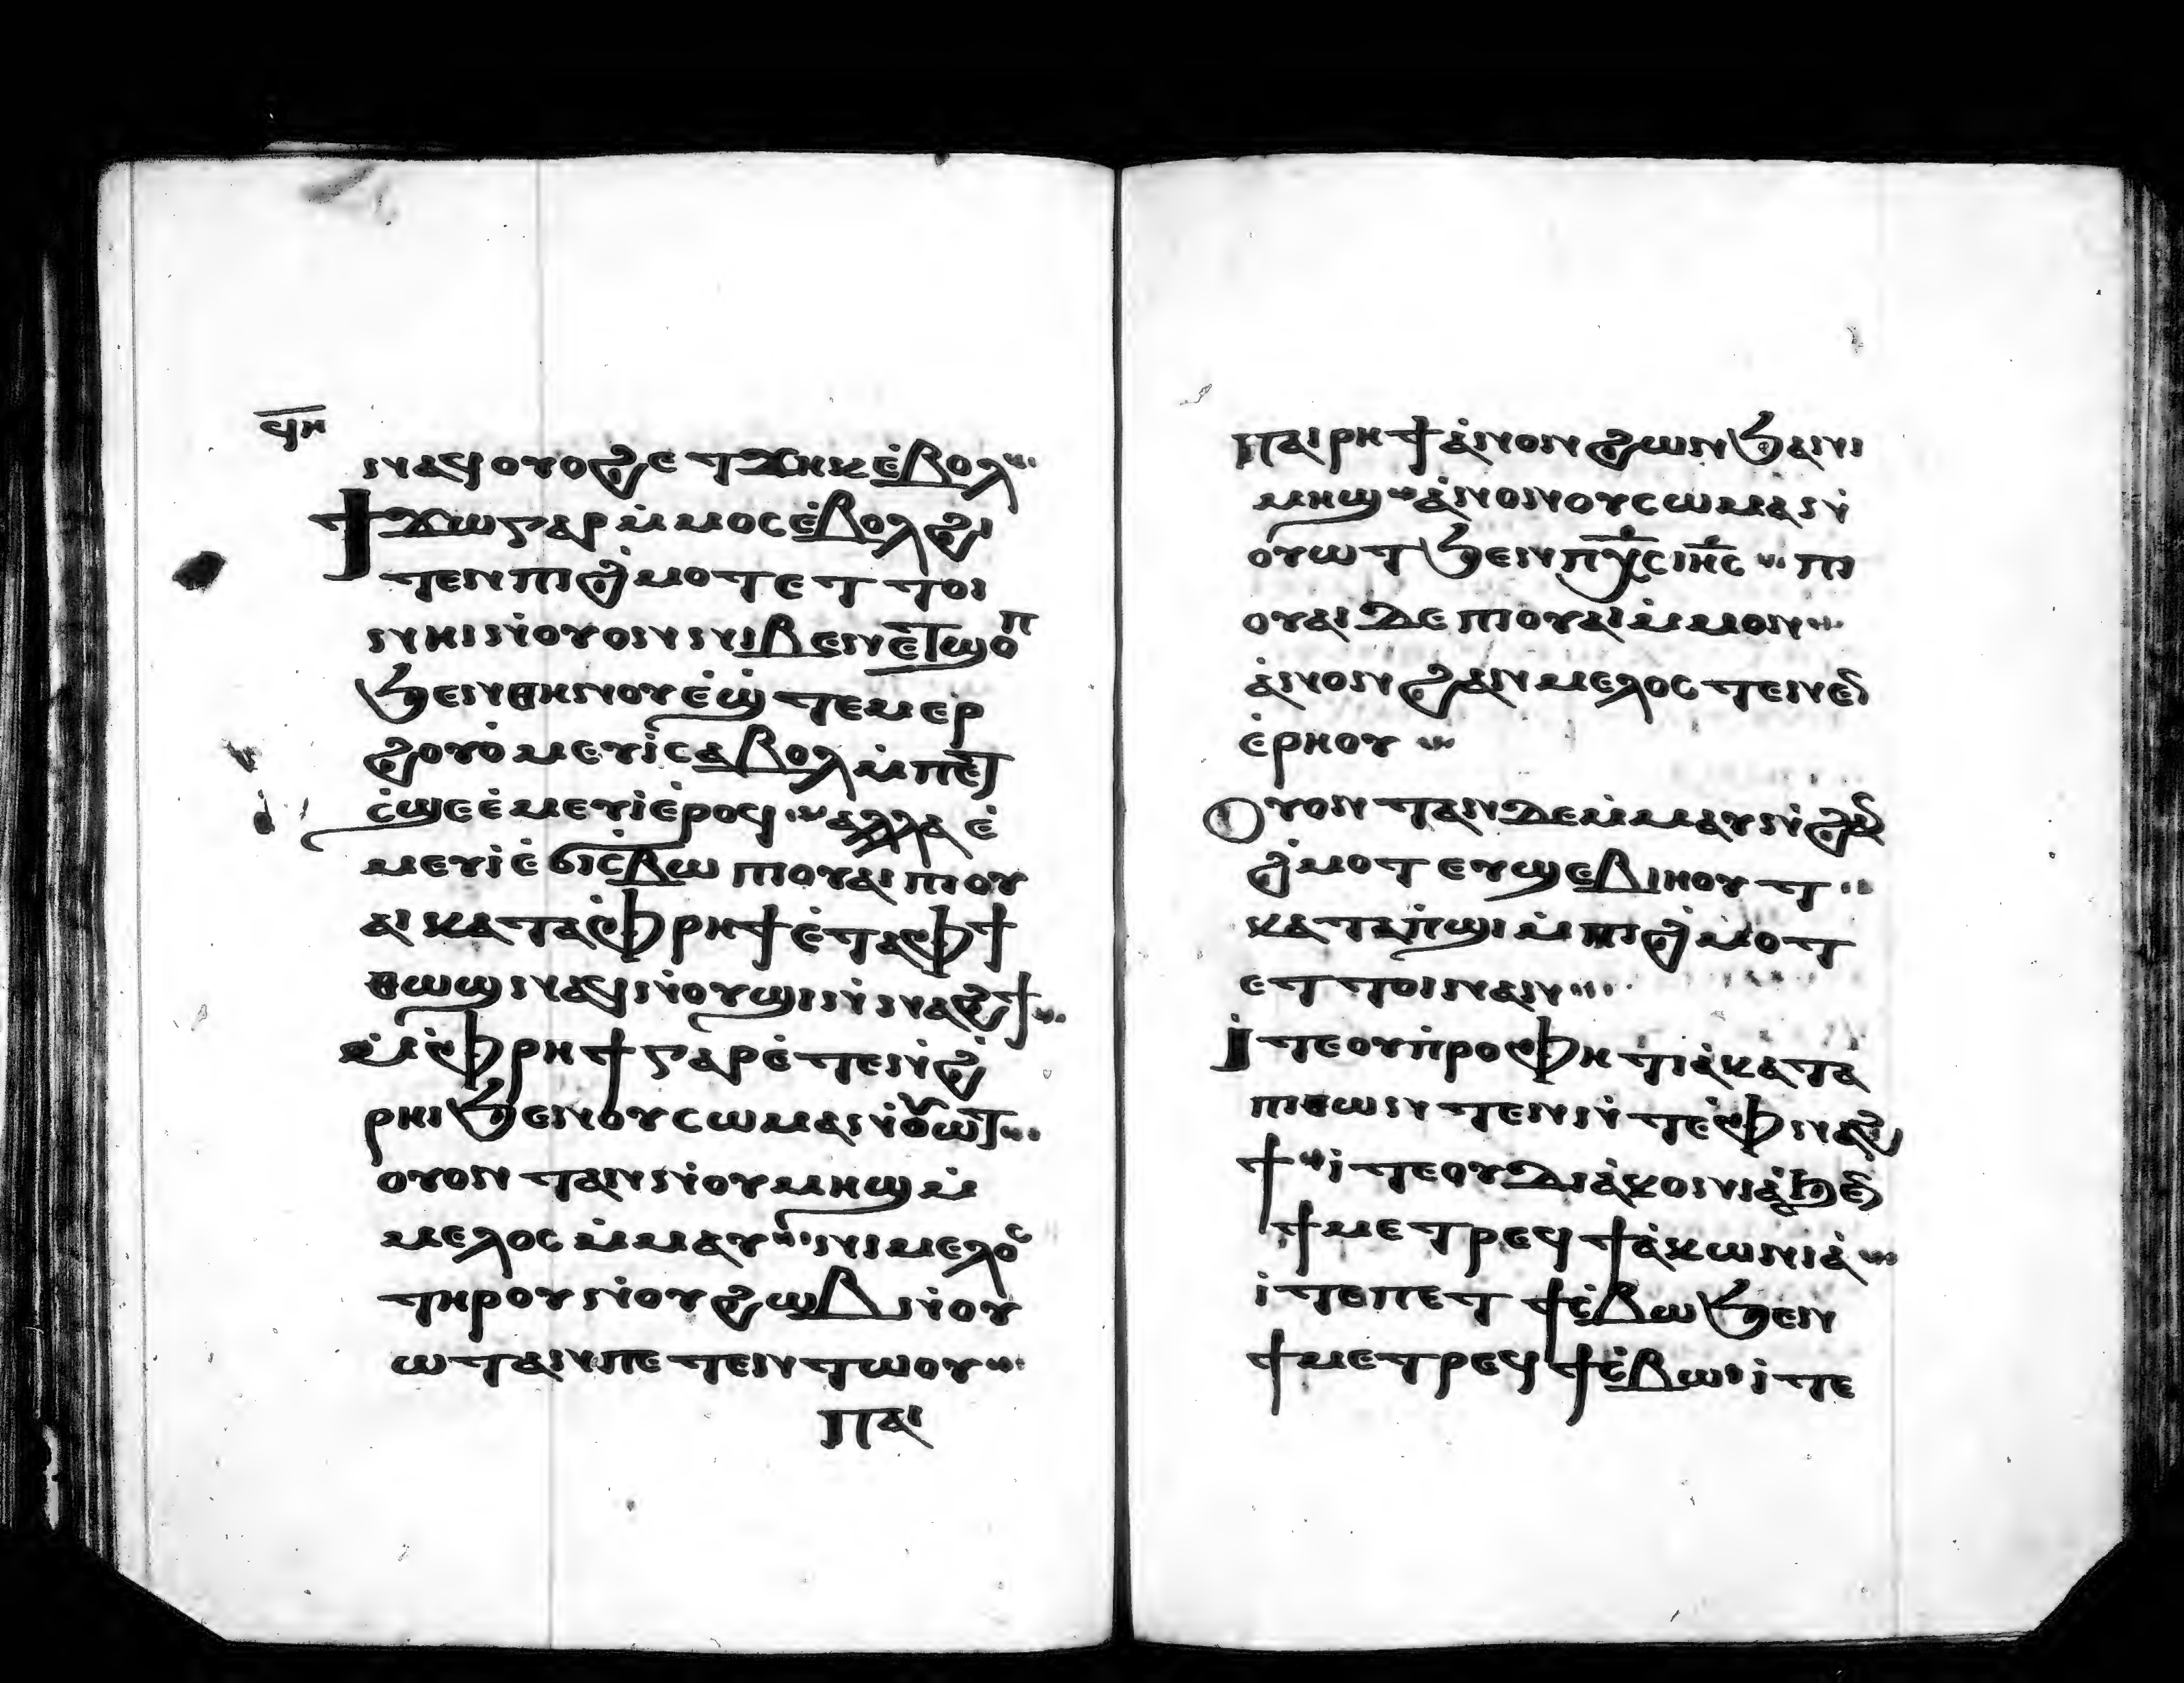 ϥⲏ
ⲛⲁϥ ⲟⲩⲟϩ ⲉⲧϫⲏⲕ ⲉ̇ⲃⲟⲗ
ϯϫⲱ ⲅⲁⲣ ⲙ̇ⲙⲟⲥ ⲉ̇ⲃⲟⲗ ϩⲓ
ⲧⲉⲛ ⲡⲓϩ̇ⲙⲟⲧ ⲉⲧⲧⲟⲓ
ⲛⲏⲓ ⲛ̇ⲟⲩⲟⲛ ⲛⲓⲃⲉⲛ ⲉ̇ⲧϣⲟⲡ
ϧⲉⲛ ⲑⲏⲛⲟⲩ ⲉ̇ϣ̇ⲧⲉⲙⲉⲣ
ϩⲟⲩⲟ̇ ⲙⲉⲩⲓ̇ ⲥⲁⲃⲟⲗ ⲙ̇ⲡⲉⲧ
ⲥ̇ϣⲉ ⲉ̇ⲙⲉⲩⲓ̇ ⲉ̇ⲣⲟϥ ⲁⲗⲗⲁ ⲉ̇
ⲙⲉⲩⲓ̇ ⲉ̇ϭⲓⲥⲃⲱ ⲡⲓⲟⲩⲁⲓ ⲡⲓⲟⲩ
ⲁⲓ ⲕⲁⲧⲁ ⲫ̇ⲣⲏϯ ⲉ̇ⲧⲁ ⲫϯ
ⲑⲱϣ ⲛⲁϥ ⲛ̇ⲟⲩϣⲓ ⲛ̇ⲛⲁϩϯ
ⲙ̇ⲫ̇ⲣⲏϯ ⲅⲁⲣ ⲉ̇ⲧⲉ ⲛ̇ϩ̇
ⲣⲏⲓ ϧⲉⲛ ⲟⲩⲥⲱⲙⲁ ⲛ̇ⲟⲩⲱⲧ
ⲟⲩⲟⲛ ⲧⲁⲛ ⲛ̇ⲟⲩⲙⲏϣ ⲙ̇
ⲙⲉⲗⲟⲥ ⲙ̇ⲙⲁⲩ ⲛⲓⲙⲉⲗⲟⲥ
ⲧⲏⲣⲟⲩ ⲛ̇ⲟⲩϩⲱⲃ ⲛ̇ⲟⲩ
ⲱⲧ ⲁⲛ ⲡⲉ ⲧⲉⲛⲧⲱⲟⲩ
ⲡⲁⲓ
ⲡⲁⲓⲣⲏϯ ⲁ̇ⲛⲟⲛ ϩⲱⲛ ϧⲁⲛⲓ
ⲙⲏϣ ⲁ̇ⲛⲟⲛ ⲟⲩⲥⲱⲙⲁ ⲛ̇
ⲟⲩⲱⲧ ϧⲉⲛ ⲡⲭ̅ⲥ ⲓⲏ̅ⲥ ⲡⲓ
ⲟⲩⲁⲓ ⲇⲉ ⲡⲓⲟⲩⲁⲓ ⲙ̇ⲙⲟⲛ
ⲁ̇ⲛⲟⲛ ϩⲁⲛⲙⲉⲗⲟⲥ ⲧⲉ ⲛⲉⲛ
ⲉ̇ⲣⲏⲟⲩ
ⲟⲩⲟⲛ ⲧⲁⲛ ⲇⲉ ⲙ̇ⲙⲁⲩ ⲛ̇ϩⲁⲛ
ϩ̇ⲙⲟⲧ ⲉⲩϣⲉⲃⲓⲏⲟⲩⲧ
ⲕⲁⲧⲁ ⲡ̇ϣⲓ ⲙ̇ⲡⲓϩ̇ⲙⲟⲧ
ⲉⲧⲧⲟⲓ ⲛⲁⲛ
ⲓ̇ⲧⲉ ⲟⲩⲡ̇ⲣⲟⲫⲏⲧⲓⲁ̇ ⲕⲁⲧⲁ
ⲡⲓⲑⲱⲛⲧⲉⲛ ⲛ̇ⲧⲉ ⲫ̇ⲛⲁϩ
ϯ ⲓ̇ⲧⲉ ⲟⲩⲇⲓⲁ̇ⲕⲟⲛⲓⲁ̇ ϧⲉⲛ
ϯⲙⲉⲧⲣⲉϥϯⲁ̇ⲕⲱⲛⲓⲁ̇
ⲓ̇ⲧⲉ ⲡⲉⲧϯⲥ̇ⲃⲱ ϧⲉⲛ
ϯⲙⲉⲧⲣⲉϥϯⲥ̇ⲃⲱ ⲓ̇ⲧⲉ